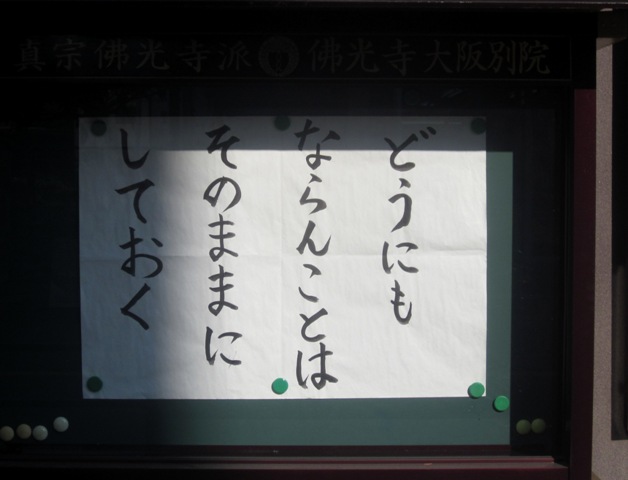 真宗佛光寺派 佛光寺大阪別院
どうにも
ならんことは
そのままに
しておく